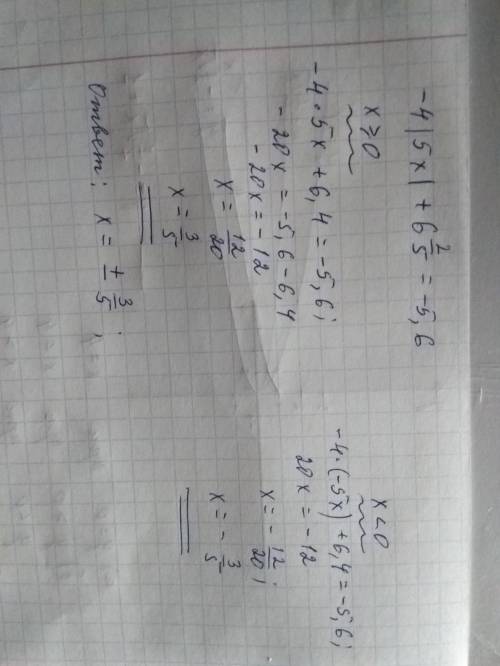 -4|5x| + 6 2/5 = -5,6
x ≥ 0
-4·5x + 6,4 = -5,6;
-20x = -5,6 - 6,4
-20x = -12
x = 12/20
x = 3/5
x < 0
-4·(-5x) + 6,4 = -5,6;
20x = -12
x = - 12/20;
x = - 3/5
Ответ: x = ± 3/5;